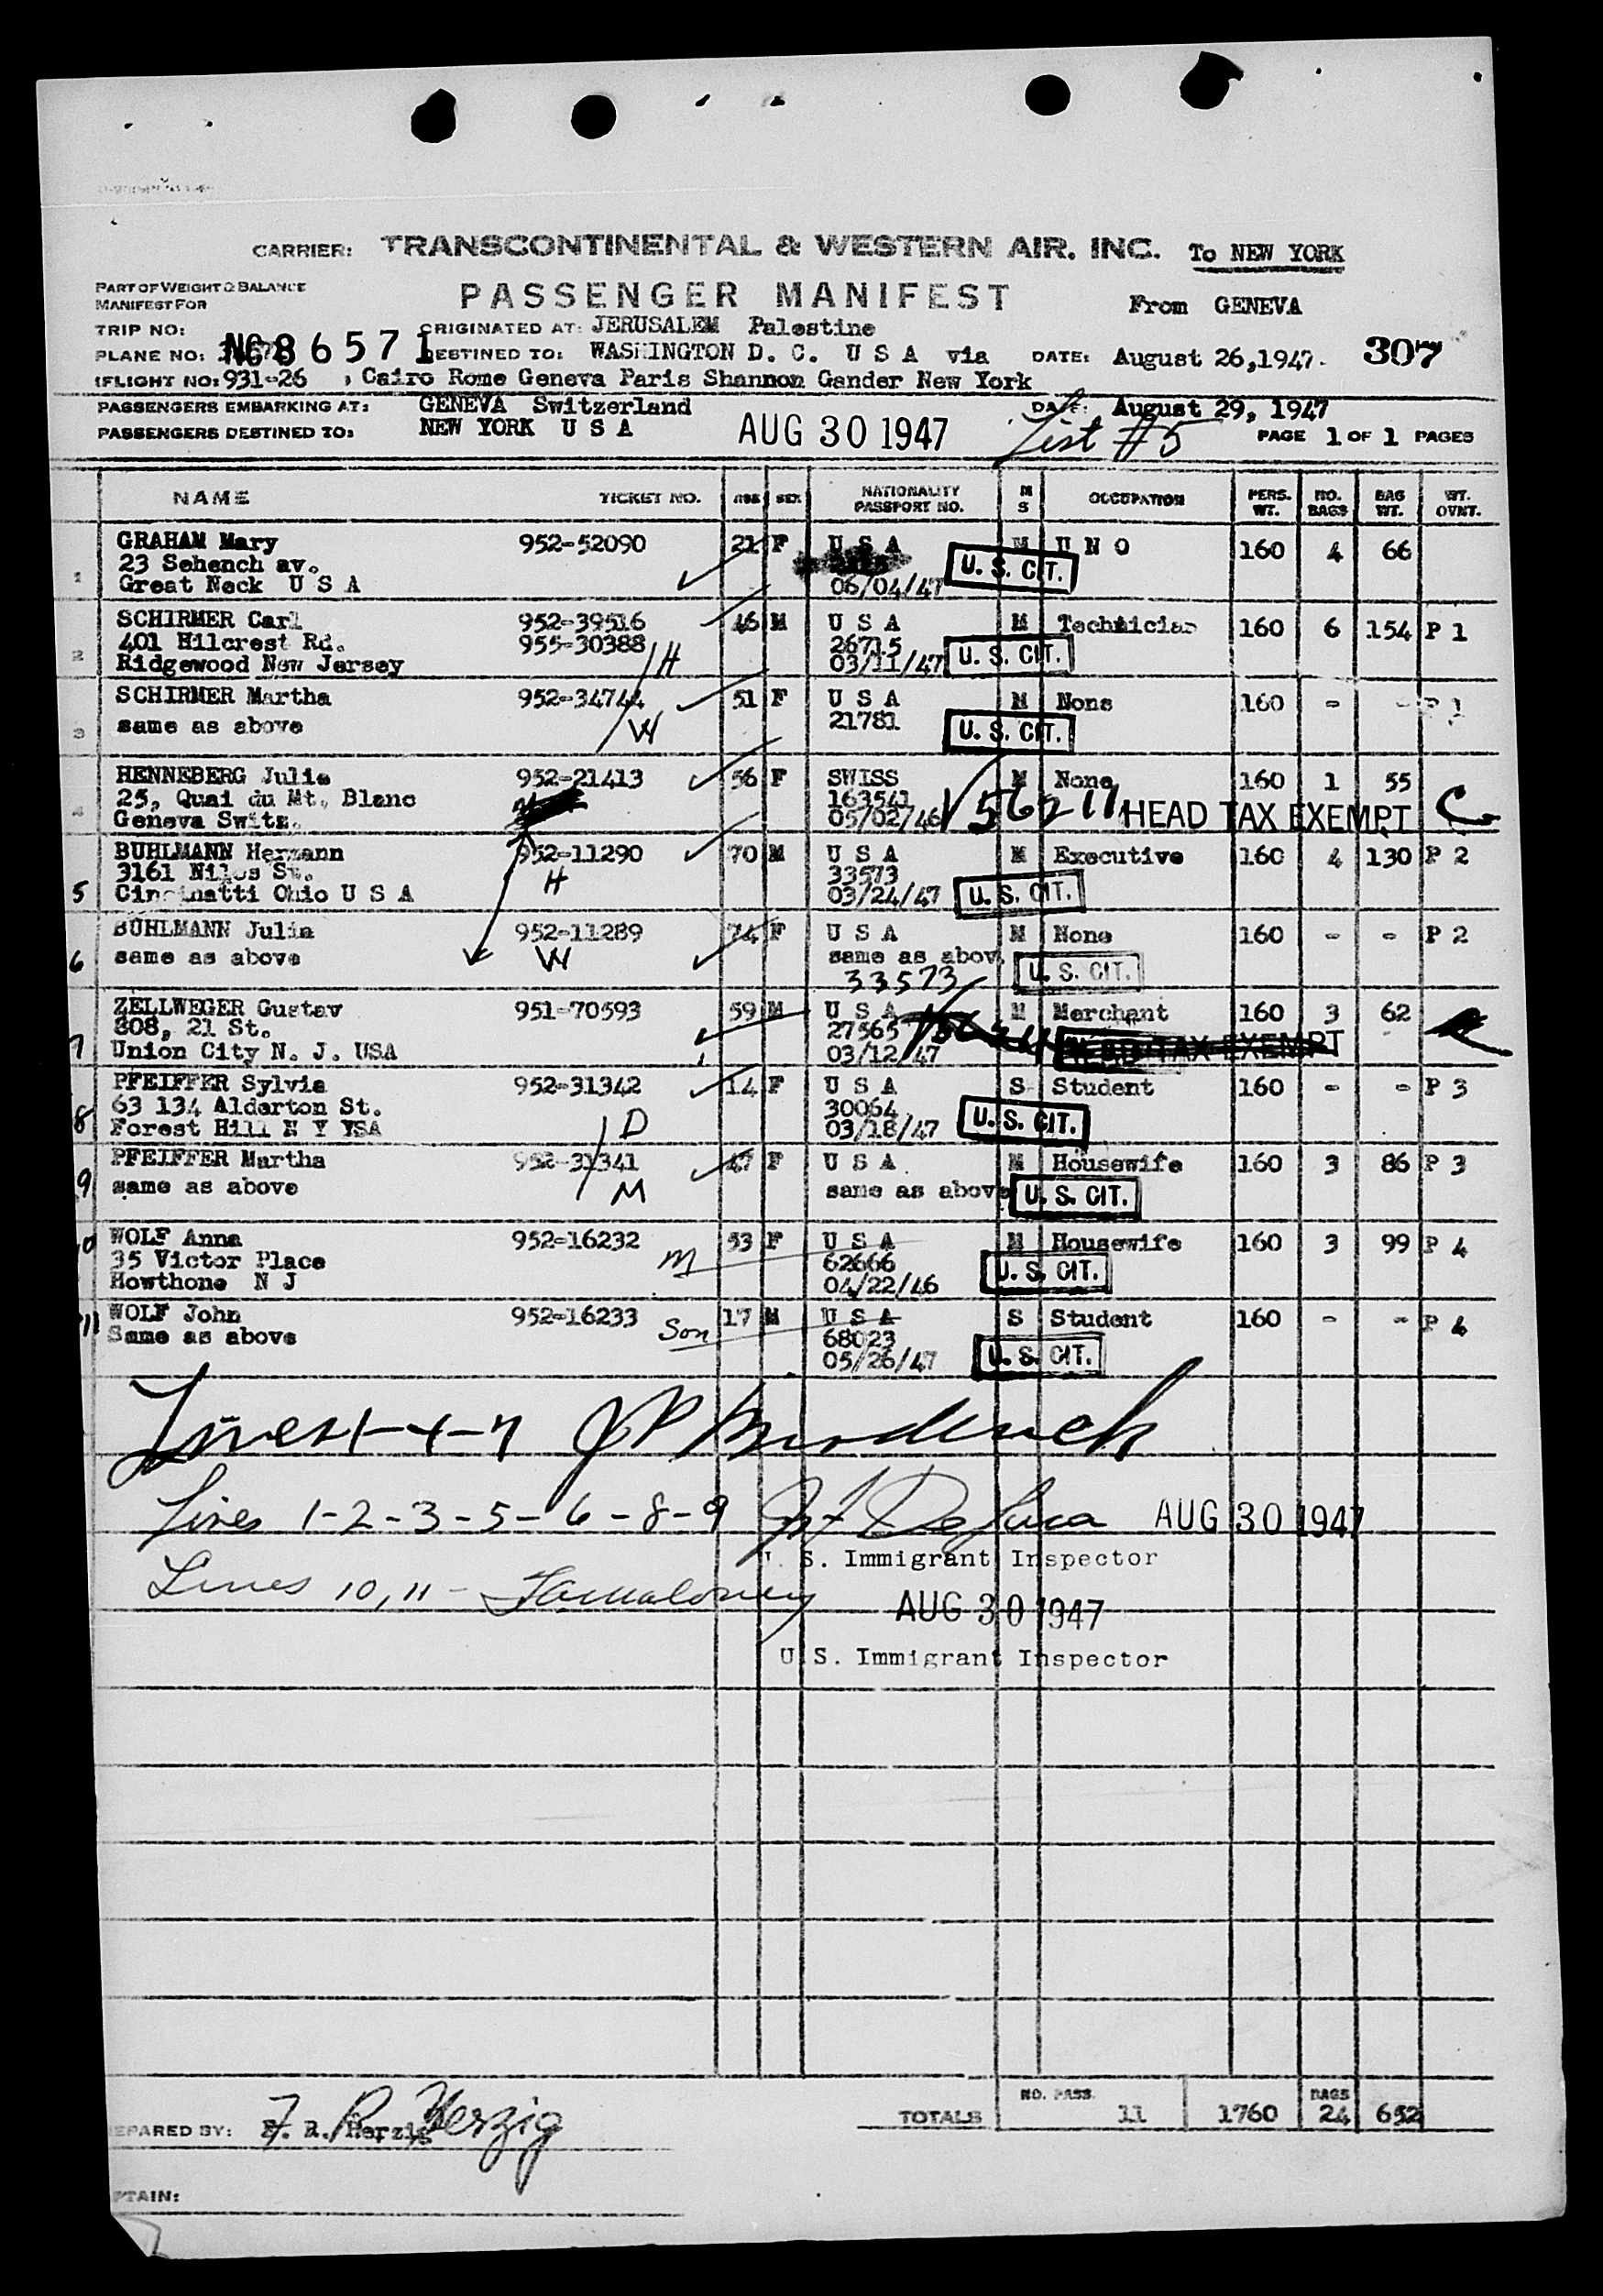 CARRIER: TRANSCONTINENTAL & WESTERN AIR. INC. To NEW YORK
PART OF WEIGHT & BALANCE
MANIFEST FOR
PASSENGER MANIFEST From GENEVA
TRIP NO: ORIGINATED AT: JERUSALEM Palestine
PLANE NO: NC86571 DESTINED TO: WASHINGTON D. C. U S A via DATE: August 26,1947. 307
FLIGHT NO: 931-26 Cairo Rome Geneva Paris Shannon Gander New York
PASSENGERS EMBARKING AT: GENEVA Switzerland DATE: August 29, 1947
PASSENGERS DESTINED TO: NEW YORK U S A AUG 30 1947 List #5 PAGE 1 OF 1 PAGES
NAME TICKET NO. AGE SEX NATIONALITY PASSPORT NO. M S OCCUPATION PERS. WT. NO. BAGS BAG WT. WT. OVNT.
GRAHAM Mary 952-52090 21 F U S A M U N O 160 4 66
23 Sehench av. U. S. CIT.
1 Great Neck U S A 06/04/47
SCHIRMER Carl 952-39516 46 M U S A M Technician 160 6 154 P 1
401 Hilcrest Rd. 955-30388 26715
2 Ridgewood New Jersey H 03/11/47 U. S. CIT.
SCHIRMER Martha 952-34744 51 F U S A M None 160 - - P 1
3 same as above W 21781 U. S. CIT.
HENNEBERG Julie 952-21413 56 F SWISS M None 160 1 55
25, Quai du Mt. Blanc 163541
4 Geneva Switz. 05/02/46 V56211 HEAD TAX EXEMPT C
BUHLMANN Hermann 952-11290 70 M U S A M Executive 160 4 130 P 2
3161 St. H 33573
5 Cincinatti Ohio U S A 03/24/47 U. S. CIT.
BUHLMANN Julia 952-11289 74 F U S A M None 160 - - P 2
6 same as above W same as above
33573 U. S. CIT.
ZELLWEGER Gustav 951-70593 59 M U S A M Merchant 160 3 62
308, 21 St. 27565
7 Union City N. J. USA 03/12/47 HEAD TAX EXEMPT
PFEIFFER Sylvia 952-31342 14 F U S A S Student 160 - - P 3
63 134 Alderton St. 30064
8 Forest Hill N Y YSA D 03/18/47 U. S. CIT.
PFEIFFER Martha 952-31341 47 F U S A M Housewife 160 3 86 P 3
9 same as above M same as above U. S. CIT.
WOLF Anna 952-16232 53 F U S A M Housewife 160 3 99 P 4
35 Victor Place M 62666
Howthone N J 04/22/46 U. S. CIT.
11 WOLF John 952-16233 17 M U S A S Student 160 - - P 4
Same as above Son 68023
05/26/47 U. S. CIT.
Lines 1-4-7
Lines 1-2-3-5-6-8-9 AUG 30 1947
U. S. Immigrant Inspector
Lines 10, 11 -
AUG 30 1947
U. S. Immigrant Inspector
TOTALS NO. PASS. 11 1760 BAGS 24 652
EPARED BY: F. R. Herzig F. R. Herzig
PTAIN: